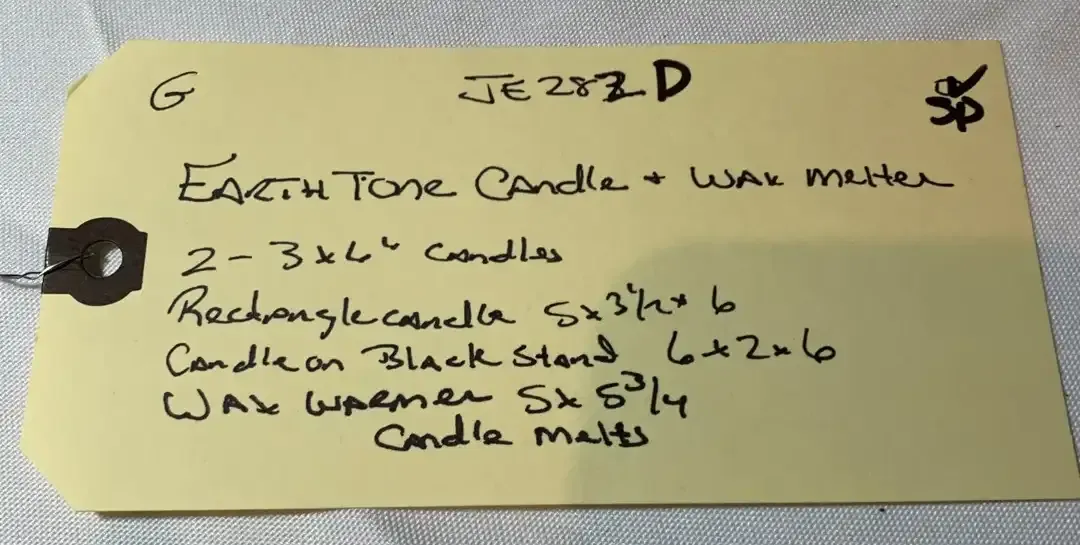 G JE282 D SP
EARTH Tone Candle + WAX Melter
2 - 3x6" Candles
Rectangle candle 5x3 1/2 x 6
Candle on Black Stand 6x2x6
WAX WARMER 5x 5 3/4
Candle Melts